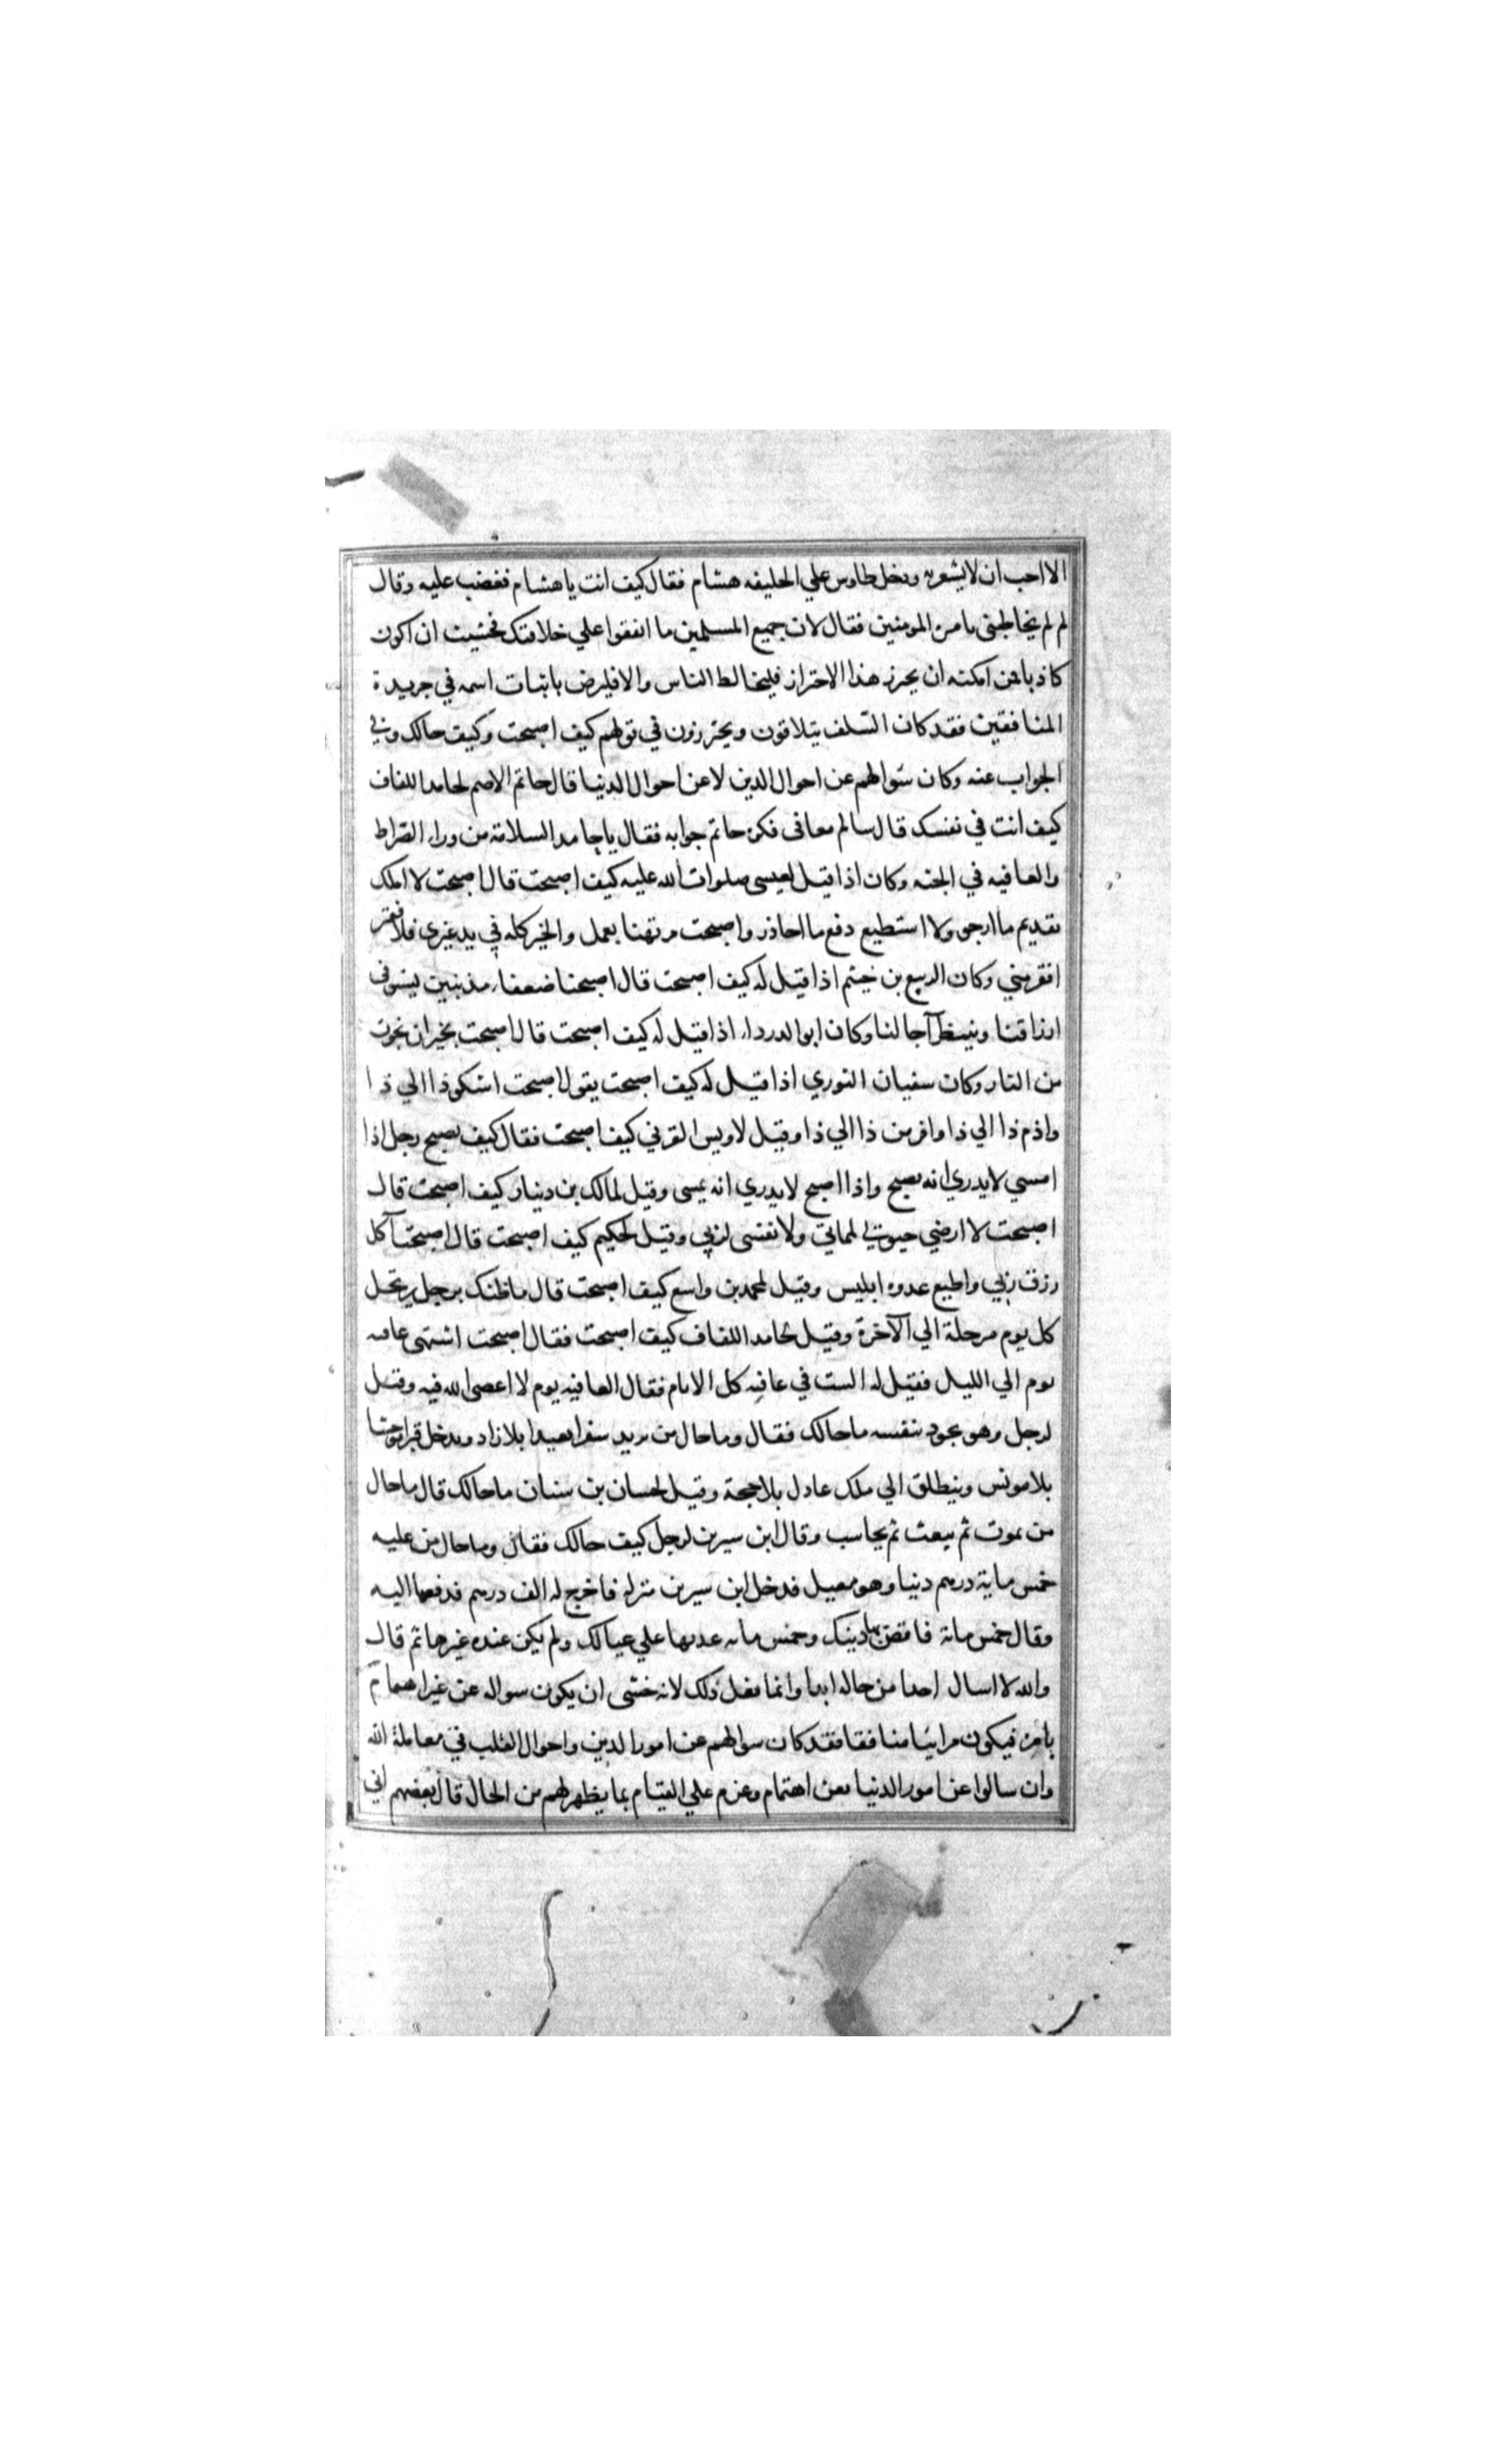 الا احب ان لا يشعر به ودخل طاوس علي الخليفه هشام فقال كيف انت يا هشام فغضب عليه وقال
لم لم تخاطبنى بامير المومنين فقال لان جميع المسلمين ما اتفقوا علي خلافتك فخشيت ان اكون
كاذبا فمن امكنه ان يحترز هذا الاحتراز فليخالط الناس والا فليرض باثبات اسمه في جريدة
المنافقين فقد كان السلف يتلاقون ويحترزون في قولهم كيف اصبحت وكيف حالك وفي
الجواب عنه وكان سوالهم عن احوال الدين لا عن احوال الدنيا قال حاتم الاصم لحامد اللفاف
كيف انت في نفسك قال سالم معافى فكره حاتم جوابه فقال يا حامد السلامة من وراء الصراط
والعافيه في الجنه وكان اذا قيل لعيسى صلوات الله عليه كيف اصبحت قال اصبحت لا املك
تقديم ما ارجو ولا استطيع دفع ما احاذر واصبحت مرتهنا بعمل والخير كله في يد غيري فلا فقير
افقر مني وكان الربيع بن خيثم اذا قيل له كيف اصبحت قال اصبحنا ضعفاء مذنبين نستوفى
ارزاقنا وننتظر آجالنا وكان ابو الدرداء اذا قيل له كيف اصبحت قال اصبحت بخير ان نجوت
من النار وكان سفيان الثوري اذا قيل له كيف اصبحت يقول اصبحت اشكو ذا الي ذا
واذم ذا الي ذا وافر من ذا الي ذا وقيل لاويس القرني كيف اصبحت فقال كيف يصبح رجل اذا
امسي لا يدري انه يصبح واذا اصبح لا يدري انه يمسى وقيل لمالك بن دينار كيف اصبحت قال
اصبحت لا ارضي حيوتي لمماتي ولا نفسى لربي وقيل لحكيم كيف اصبحت قال اصبحت آكل
رزق ربي واطيع عدوه ابليس وقيل لمحمد بن واسع كيف اصبحت قال ما ظنك برجل يرتحل
كل يوم مرحلة الي الآخرة وقيل لحامد اللفاف كيف اصبحت فقال اصبحت اشتهى عافيه
يوم الي الليل فقيل له الست في عافيه كل الايام فقال العافيه يوم لا اعصى الله فيه وقيل
لرجل وهو يجود بنفسه ما حالك فقال وما حال من يريد سفرا بعيدا بلا زاد ويدخل قبرا موحشا
بلا مونس وينطلق الي ملك عادل بلا حجة وقيل لحسان بن سنان ما حالك قال ما حال
من يموت ثم يبعث ثم يحاسب وقال ابن سيرين لرجل كيف حالك فقال وما حال من عليه
خمس ماية درهم دينا وهو معيل فدخل ابن سيرين منزله فاخرج له الف درهم فدفعها اليه
وقال خمس ماية فاقض بها دينك وخمس مايه عد بها علي عيالك ولم يكن عنده غيرها ثم قال
والله لا اسال احدا من حاله ابدا وانما فعل ذلك لانه خشى ان يكون سواله عن غير اهتمام
بامره فيكون مرائيا منافقا فقد كان سوالهم عن امور الدين واحوال القلب في معاملة الله
وان سالوا عن امور الدنيا فعن اهتمام وعزم علي القيام بما يظهر لهم من الحال قال بعضهم اني